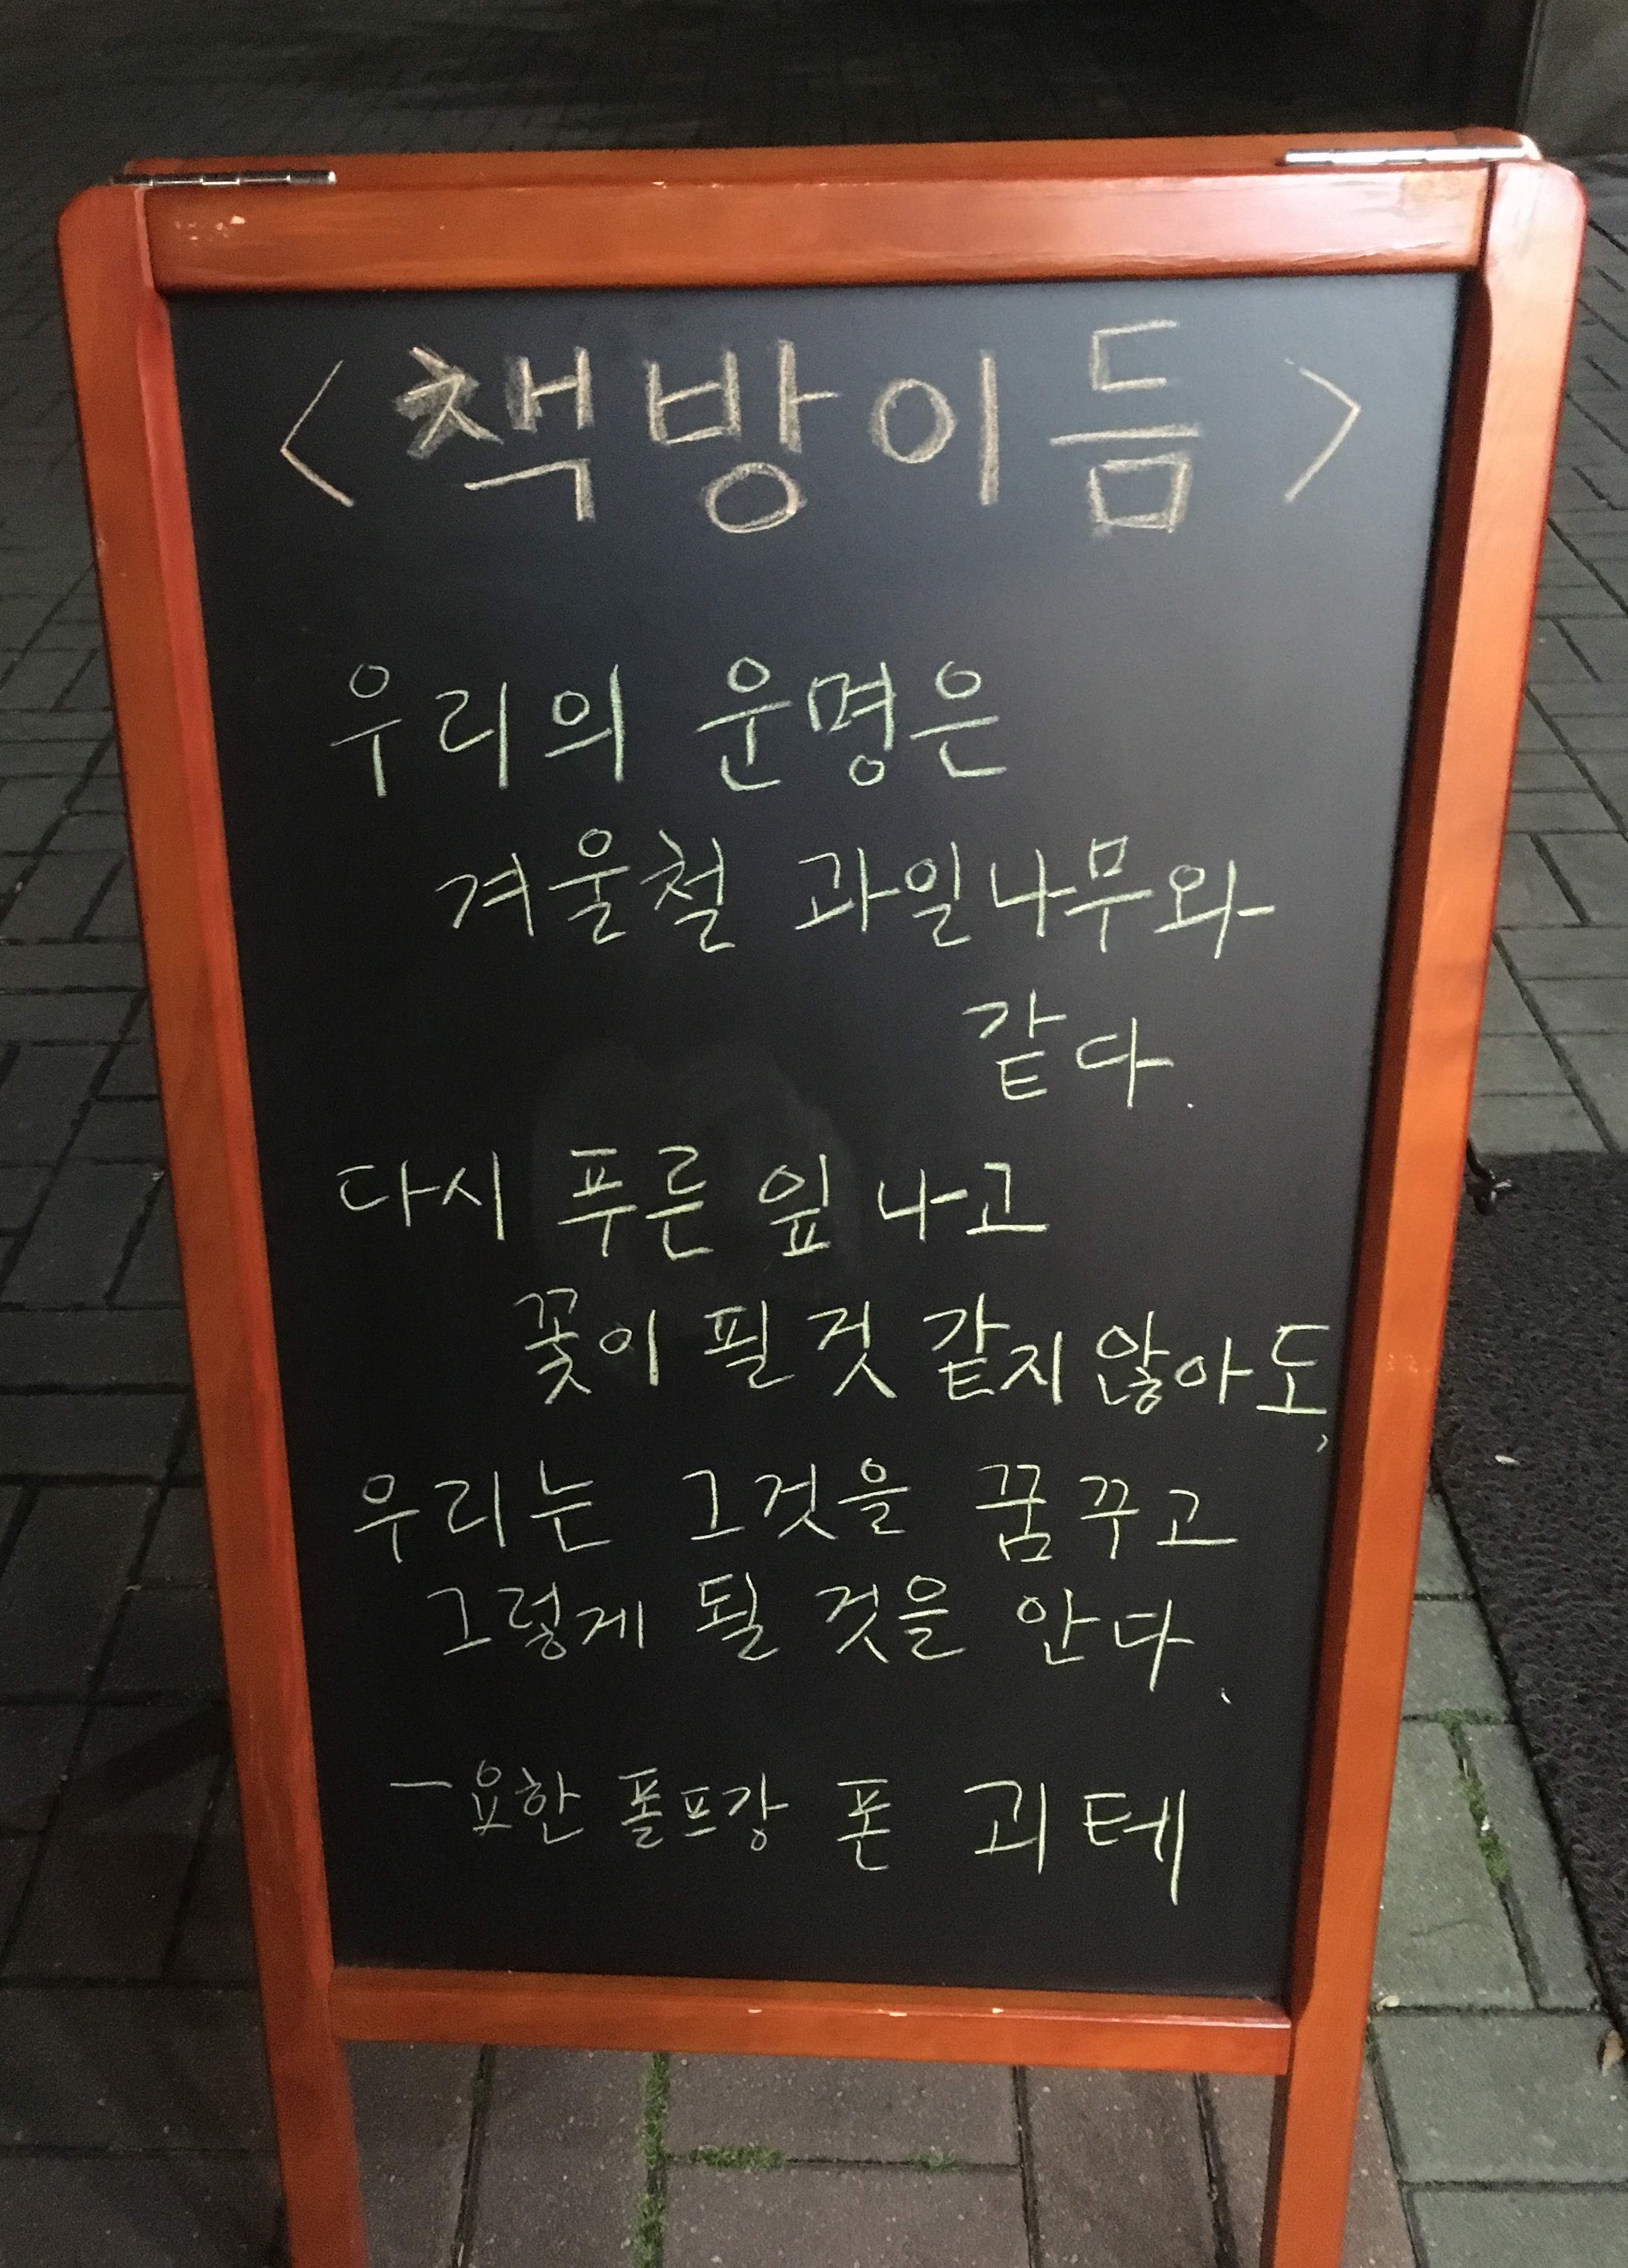 <책방이듬>
우리의 운명은
겨울철 과일나무와
같다.
다시 푸른 잎 나고
꽃이 필 것 같지 않아도,
우리는 그것을 꿈꾸고
그렇게 될 것을 안다.
- 요한 폴프강 폰 괴테